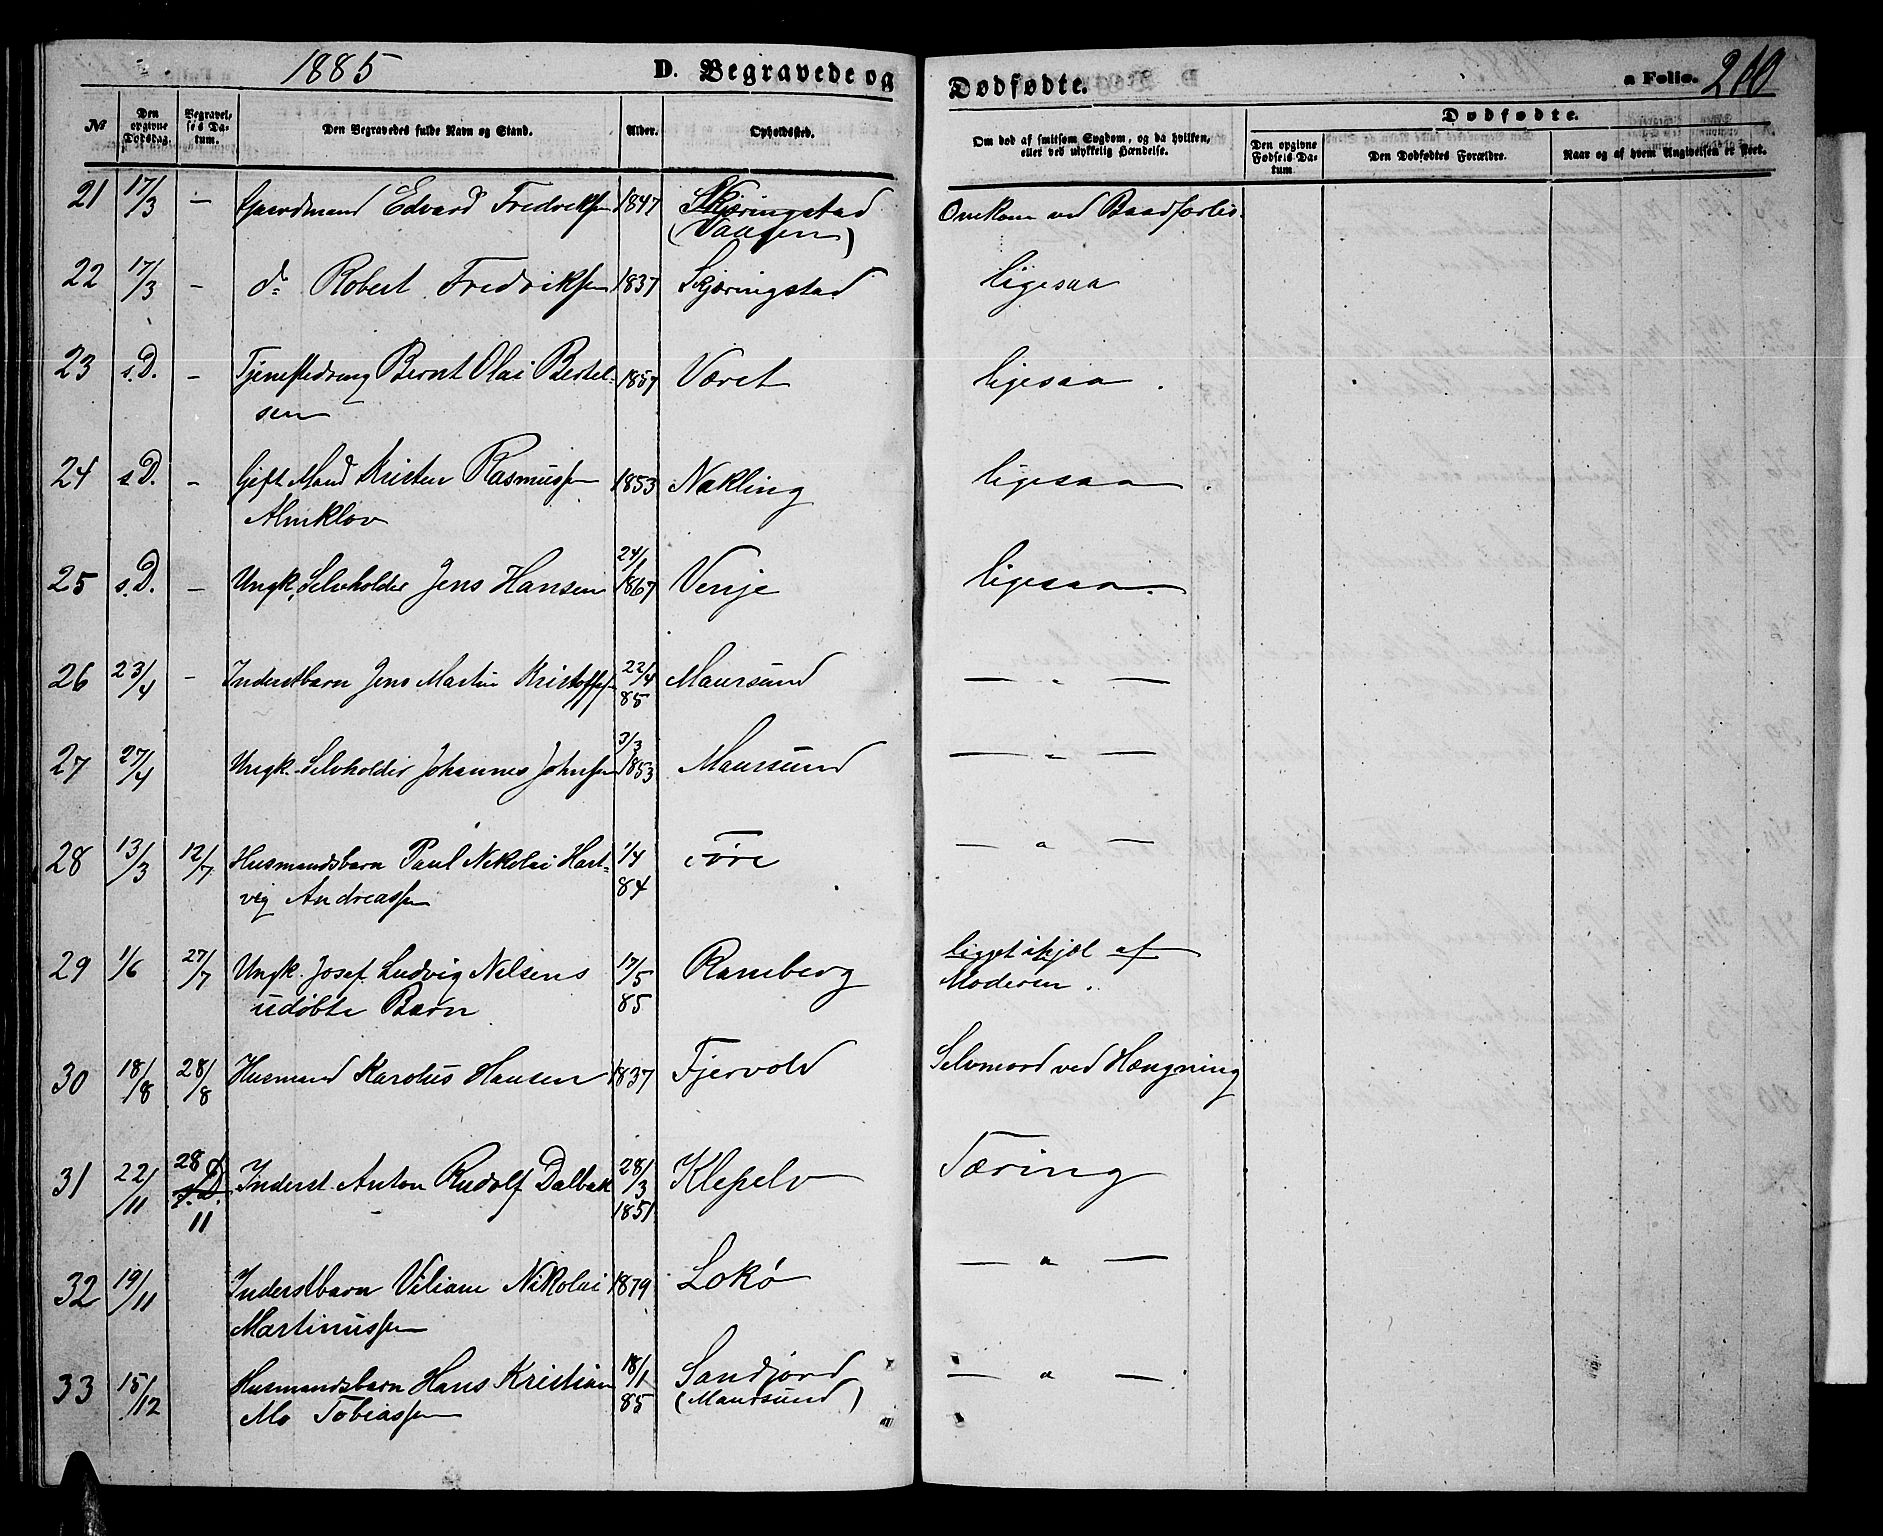 1885
D. Begravede og
Dødfødte.
a Folio. 210
№
Den opgivne Dødsdag.
Begravelses Datum.
Den Begravedes fulde Navn og Stand.
Alder.
Opholdssted.
Om død af smitsom Sygdom, og da hvilken, eller ved ulykkelig Hændelse.
Dødfødte.
Den opgivne Fødsels Datum.
Den Dødfødtes Forældre.
Naar og af hvem Angivelsen er skeet.
21 17/3 — Gaardmand Edvard Fredriksen 1847 Skjæringstad Omkom ved Baadforlis.
(Vaagen)
22 17/3 - do Robert Fredriksen 1837 Skjæringstad ligesaa
23 s.D. - Tjenestedreng Bernt Olai Bertel- 1857 Været ligesaa.
sen
24 s.D. - Gift Mand Kristen Rasmussen 1853 Nøkling ligesaa.
Almklov
25 s.D. - Ungk. Selvholder Jens Hansen 24/1 1867 Venje ligesaa.
26 23/4 - Inderstbarn Jens Martin Kristoffersen 22/4 85 Maursund — " —
27 27/4 Ungk. Selvholder Johannes Johnsen 3/3 1853 Maursund — " —
28 13/3 12/7 Husmandsbarn Paul Nikolai Hart- 1/4 84 Føre — " —
vig Andreassen
29 1/6 27/7 Ungk. Josef Ludvig Nelsens 17/5 85 Ramberg ligget ihjel af
udøbte Barn Moderen.
30 18/8 28/8 Husmand Karolus Hansen 1837 Fjervold Selvmord ved Hængning
31 22/11 28 s.D. 11 Inderst Anton Rudolf Dalbak 28/3 1851 Klepelv Tæring
32 19/11 Inderstbarn Viliam Nikolai 1879 Lokø — " —
Martinussen
33 15/12 Husmandsbarn Hans Kristian 18/1 85 Sandjord — " —
Mo Tobiassen (Maursund)